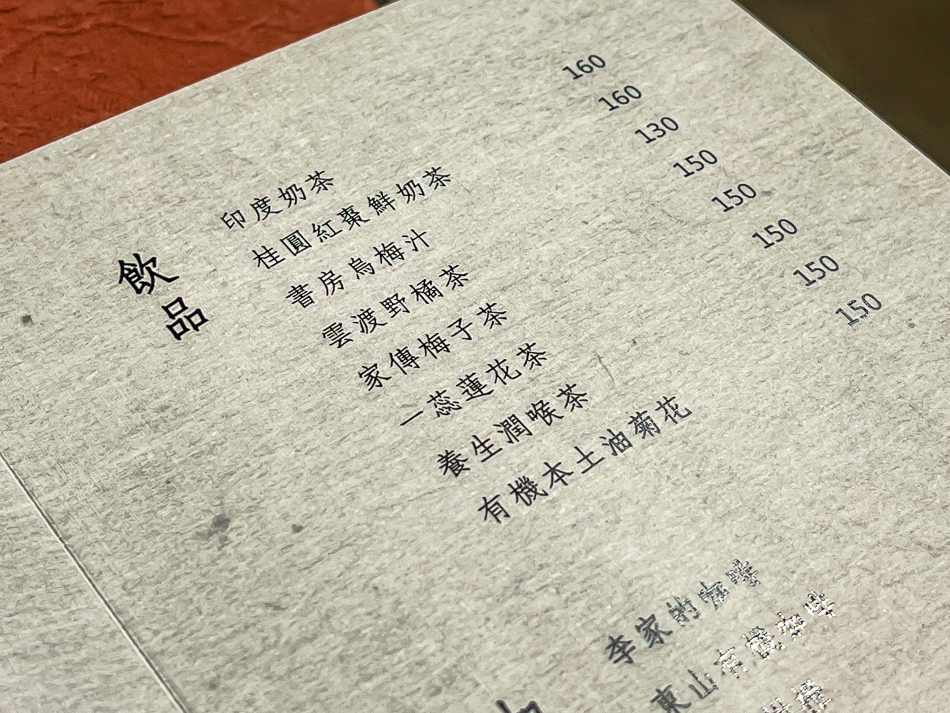 飲品
印度奶茶 160
桂圓紅棗鮮奶茶 160
書房烏梅汁 130
雲渡野橘茶 150
家傳梅子茶 150
一蕊蓮花茶 150
養生潤喉茶 150
有機本土油菊花 150
李家的咖啡
東山有機咖啡